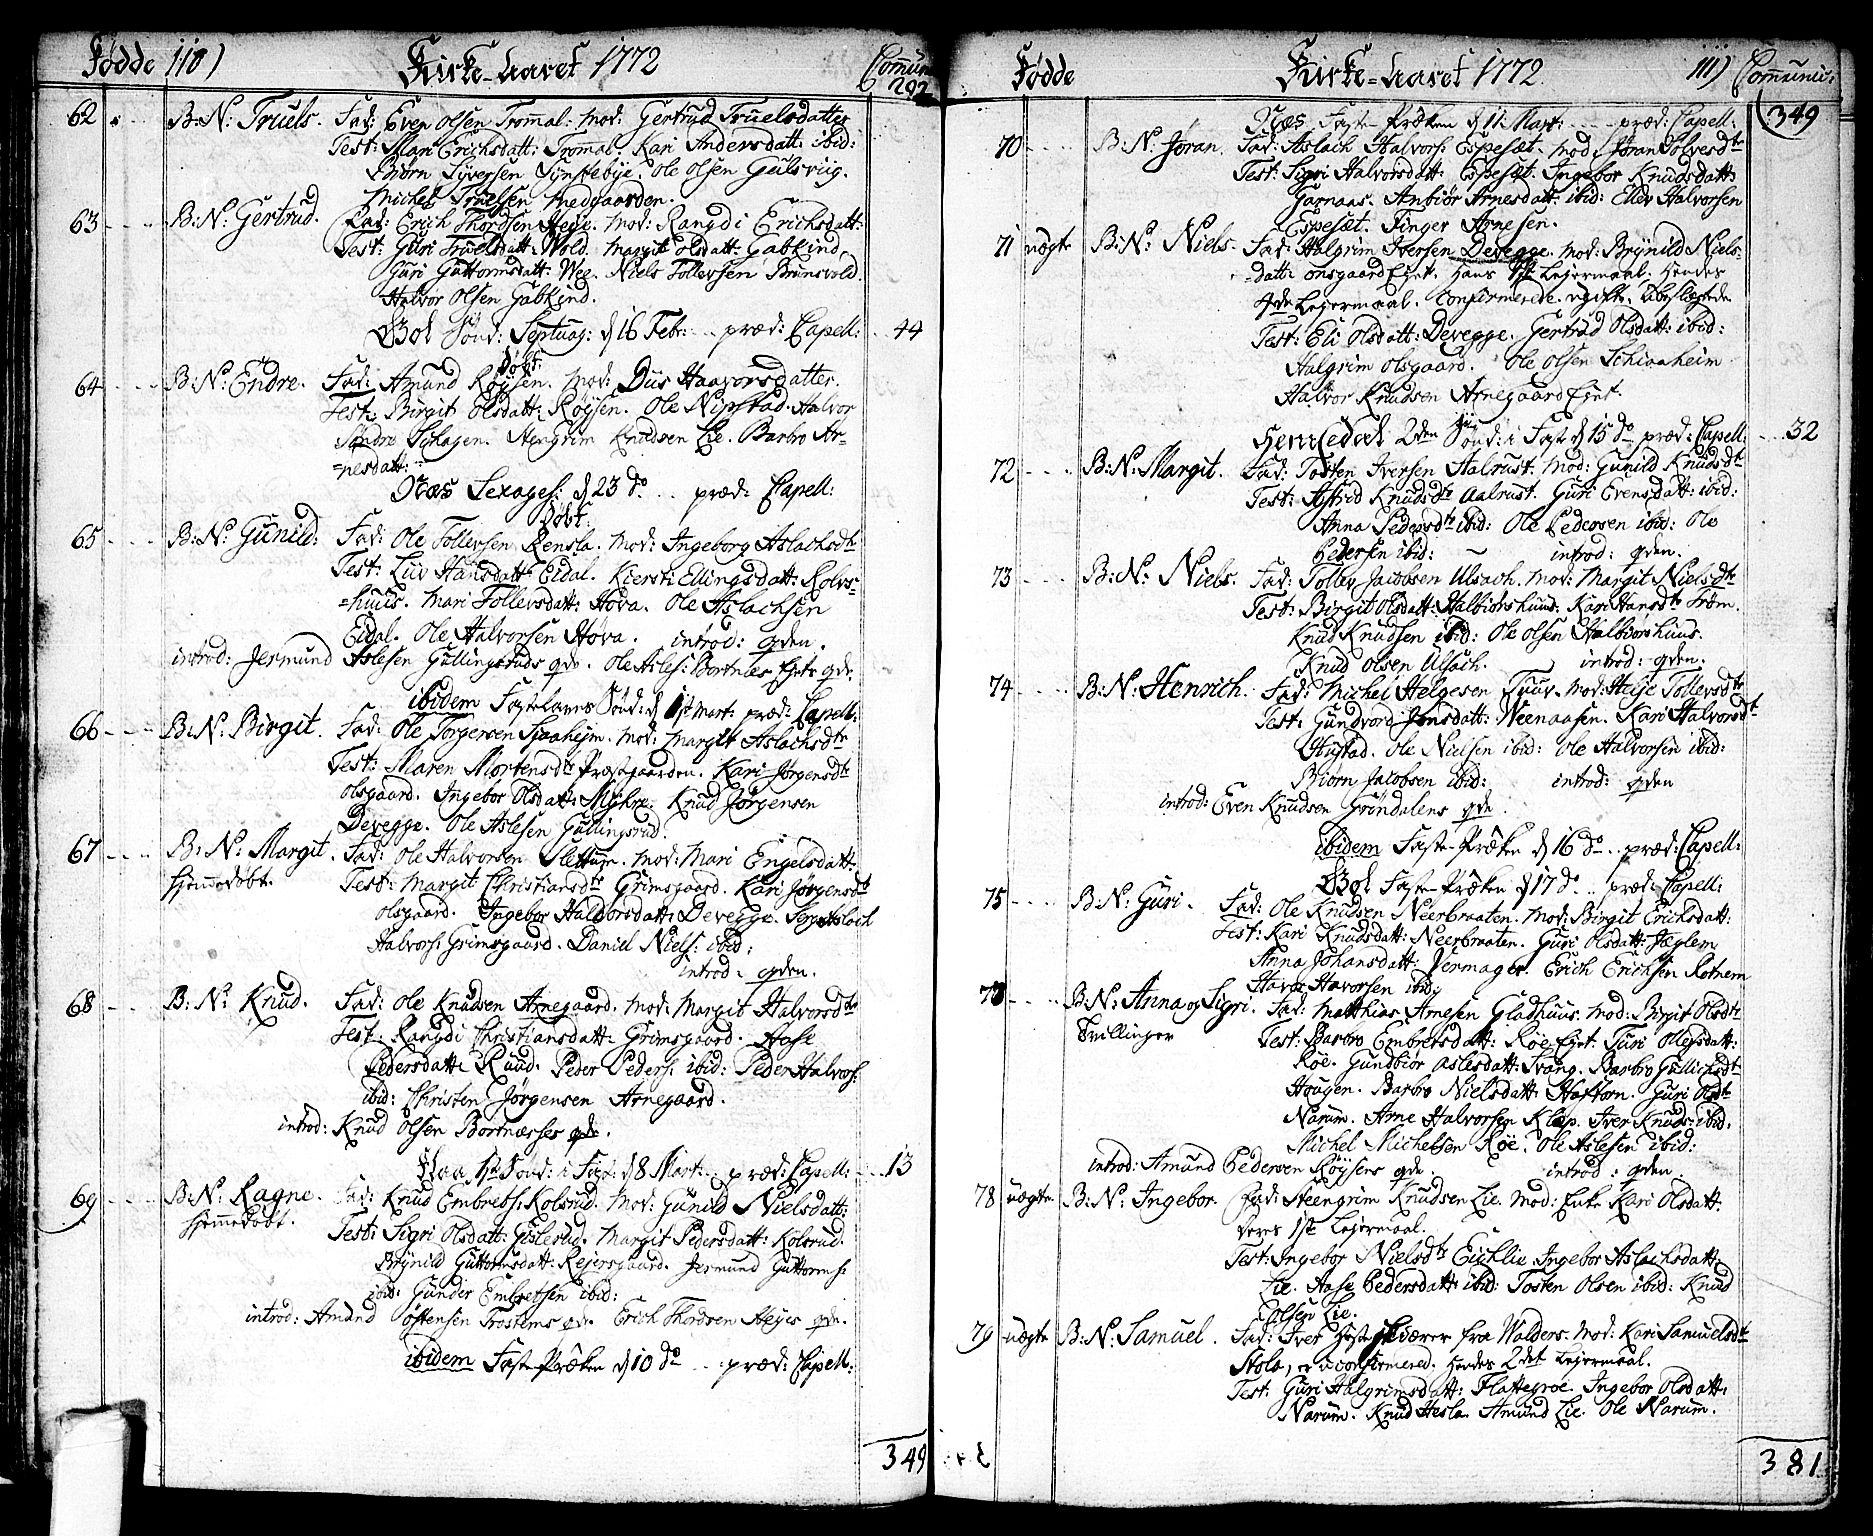 Fødde 110) Kirke-Aaret 1772 Comun
292
62 B: N: Truels. Fad: Even Olsen Tromal: mod: Gertrud Truelsdatter
Test: Mari Erichsdatt: Tromal. Kari Andersdatt: ibid:
Biørn Syversen Synstebye. Ole Olsen Gulsviig.
Michel Truelsen Smedgaarden.
63 B: N: Gertrud. Fad: Erich Thordsen Heye. mod: Rangdi Erichsdatt:
Test: Guri Truelsdatt: Wold. Margit Olsdatt: Gabkind,
Guri Guttormsdatt: Wee. Niels Tollevsen Brunsvold
Halvor Olsen Gabkind.
Ghol Sönd: Septuag: d 16 Febr: præd: Capell: 44
döbt:
64 B: N: Endre. Fad: Amund Røysen. Mod: Dus Haavorsdatter.
Test: Birgit Olsdatt: Røysen. Ole Nipstad. Halvor
Søndre Schagen. Stengrim Knudsen Lie. Barbro Ar=
=nesdatt:
Næs Sexages: d 23 do præd: Capell:
döbt:
65 B: N: Gunild: Fad: Ole Tollevsen Rensla. Mod: Ingeborg Aslachsdtr
Test: Liv Hansdatt: Eidal. Kiersti Ellingsdatt: Rolvs=
=huus. Mari Tollevsdatt: Hova. Ole Aslachsen
Eidal. Ole Halvorsen Hova. introd: qden.
introd: Jermund Aslesen Gullingsruds qde. Ole Asles: Bortnæs Ejets qde.
ibidem Fastelavns Sönd: d 1ste Mart: præd: Capell:
66 B: N: Birgit. Fad: Ole Torgersen Sjaaheim. Mod: Margit Aslachsdtr
Test: Maren Mortensdtr Præstgaarden. Kari Jørgensdtr
Olsgaard. Ingebor Olsdatt: Myhre. Knud Jørgensen
Devegge. Ole Aslesen Gullingsrud.
67 B: N: Margit. Fad: Ole Halvorsen Slettum. mod: Mari Engelsdatt:
hjemmedöbt. Test: Margit Christiansdtr Grimsgaard. Kari Jørgensdtr
Olsgaard. Ingebor Haldorsdatt: Devegge. Aslach
Halvors: Grimsgaard. Daniel Niels: ibid:
introd: qden.
68 B: N: Knud. Fad: Ole Knudsen Arnegaard. mod: Margit Halvorsdtr
Test: Rangdi Christiansdatt: Grimsgaard. Aase
Pedersdatt: Ruud. Peder Peders: ibid: Peder Halvors:
ibid: Christen Jørgensen Arnegaard.
introd: Knud Olsen Bortnæsses qde.
Flaa 1ste Sönd: i Fast: d 8 Mart: præd: Capell: 13
69 B: N: Ragne. Fad: Knud Embrets: Kolsrud. Mod: Gunild Nielsdatt:
hjemmedöbt. Test: Sigri Olsdatt: Gislerud. Margit Pedersdatt: Kolsrud.
Brynild Guttormsdatt: Rejersgaard. Jermund Guttorms:
ibid: Gunder Embretsen ibid:
introd: Amund Tostensen Trostems qde. Erich Thordsen Heyes qde.
ibidem Faste-Præken d 10 do præd: Capell:
349
Fødde Kirke-Aaret 1772 111) Comunic:
349
Næs Faste-Præken d 11 Mart: præd: Capell.
70 B: N: Jøran. Fad: Aslach Halvors: Espeset. mod: Jøran Tolvesdtr
Test: Sigri Halvorsdatt: Espeset. Ingebor Knudsdatt:
Garnaas. Anbiør Arnesdatt: ibid: Ellev Halvorsen
Espeset. Finger Arnesen.
71 uægte B: N: Niels. Fad: Halgrim Iversen Devegge. Mod: Brynild Niels=
=datt: Onsgaard Ejet. Hans Lejermaal. Hendes
Lejermaal. Confirmerede. ugifte. Ubeslægtede
Test: Eli Olsdatt: Devegge. Gertrud Olsdatt: ibid:
Halgrim Olsgaard. Ole Olsen Schiaaheim
Halvor Knudsen Arnegaard Ejet.
Hemsedal 2den Sönd: i Fast d 15 do præd: Capell: 32
72 B: N: Margit. Fad: Tosten Iversen Aalrust. Mod: Gunild Knudsdtr
Test: Astrid Knudsdtr Aalrust. Guri Evensdatt: ibid:
Anna Pedersdtr ibid: Ole Pedersen ibid: Ole
Pedersen ibid: introd: qden.
73 B: N: Niels. Fad: Tollev Jacobsen Ulsach. Mod: Margit Nielsdtr
Test: Birgit Olsdatt: Halbiørshuus: Kari Hansdtr Trøm.
Knud Knudsen ibid: Ole Olsen Halbiørshuus.
Knud Olsen Ulsach. introd: qden.
74 B: N: Henrich. Fad: Michel Helgesen Tuuv. Mod: Heije Tollevsdtr
Test: Gundvord Jonsdatt: Weenaasen. Kari Halvorsdtr
Hustad. Ole Nielsen ibid: Ole Halvorsen ibid:
Biørn Jacobsen ibid: introd: qden
introd: Even Knudsen Grøndalens qde.
ibidem Faste-Præken d 16 do præd: Capell:
Ghol Faste-Præken d 17 do præd: Capell:
75 B: N: Guri. Fad: Ole Knudsen Neerbraaten. Mod: Birgit Erichsdatt:
Test: Kari Knudsdatt: Neerbraaten. Guri Olsdatt: Jeglem
Anna Johansdatt: Vermager. Erich Erichsen Rotnem
Havor Havorsen ibid:
B: N: Anna og Sigri. Fad: Matthias Arnesen Gladhuus. Mod: Birgit Olsdtr
Tvillinger Test: Barbro Embretsdatt: Røe Ejet. Turi Olsdatt:
Røe. Gundbiør Aslesdatt: Svang. Barbro Gullichsdtr
Hougen. Barbro Nielsdatt: Haftorn. Guri Olsdtr
Narum. Arne Halvorsen Klep. Iver Knuds: ibid.
Michel Michelsen Røe. Ole Aslesen ibid:
introd: Amund Pedersen Røysens qde. introd: qden.
78 uægte B: N: Ingebor. Fad: Steengrim Knudsen Lie. Mod: Enke Kari Olsdatt:
Deres 1ste Lejermaal.
Test: Ingebor Nielsdtr Eichlie. Ingebor Aslachsdatt:
Lie. Aase Pedersdatt: ibid: Tosten Olsen ibid: Knud
Colsen Lie.
79 uægte B: N: Samuel. Fad: Iver fra Walders. Mod: Kari Samuelsdtr
Stola, er u confirmered. Hendes 2det Lejermaal.
Test: Guri Halgrimsdatt: Flattegrøe. Ingebor Olsdatt:
Narum. Knud Hesla. Amund Lie. Ole Narum.
381